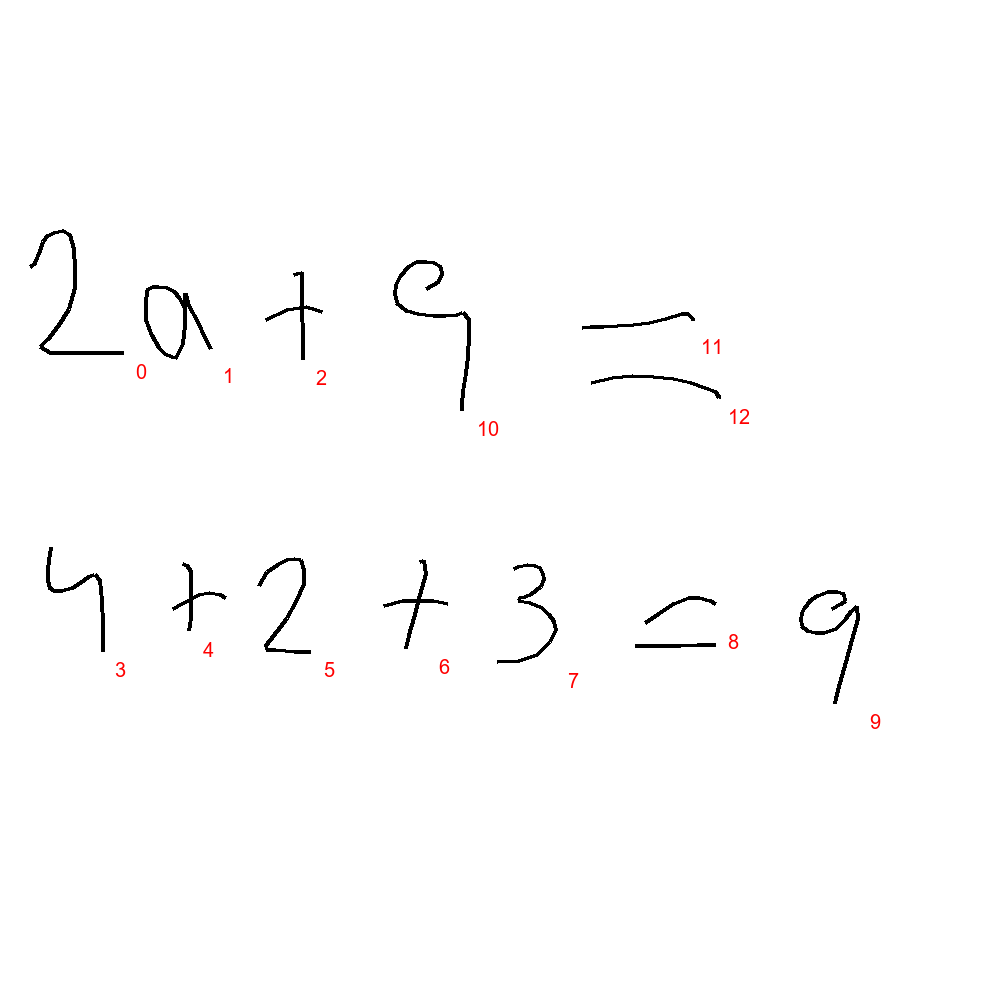 2a + 9 =
0 1 2 10 11 12
4 + 2 + 3 = 9
3 4 5 6 7 8 9